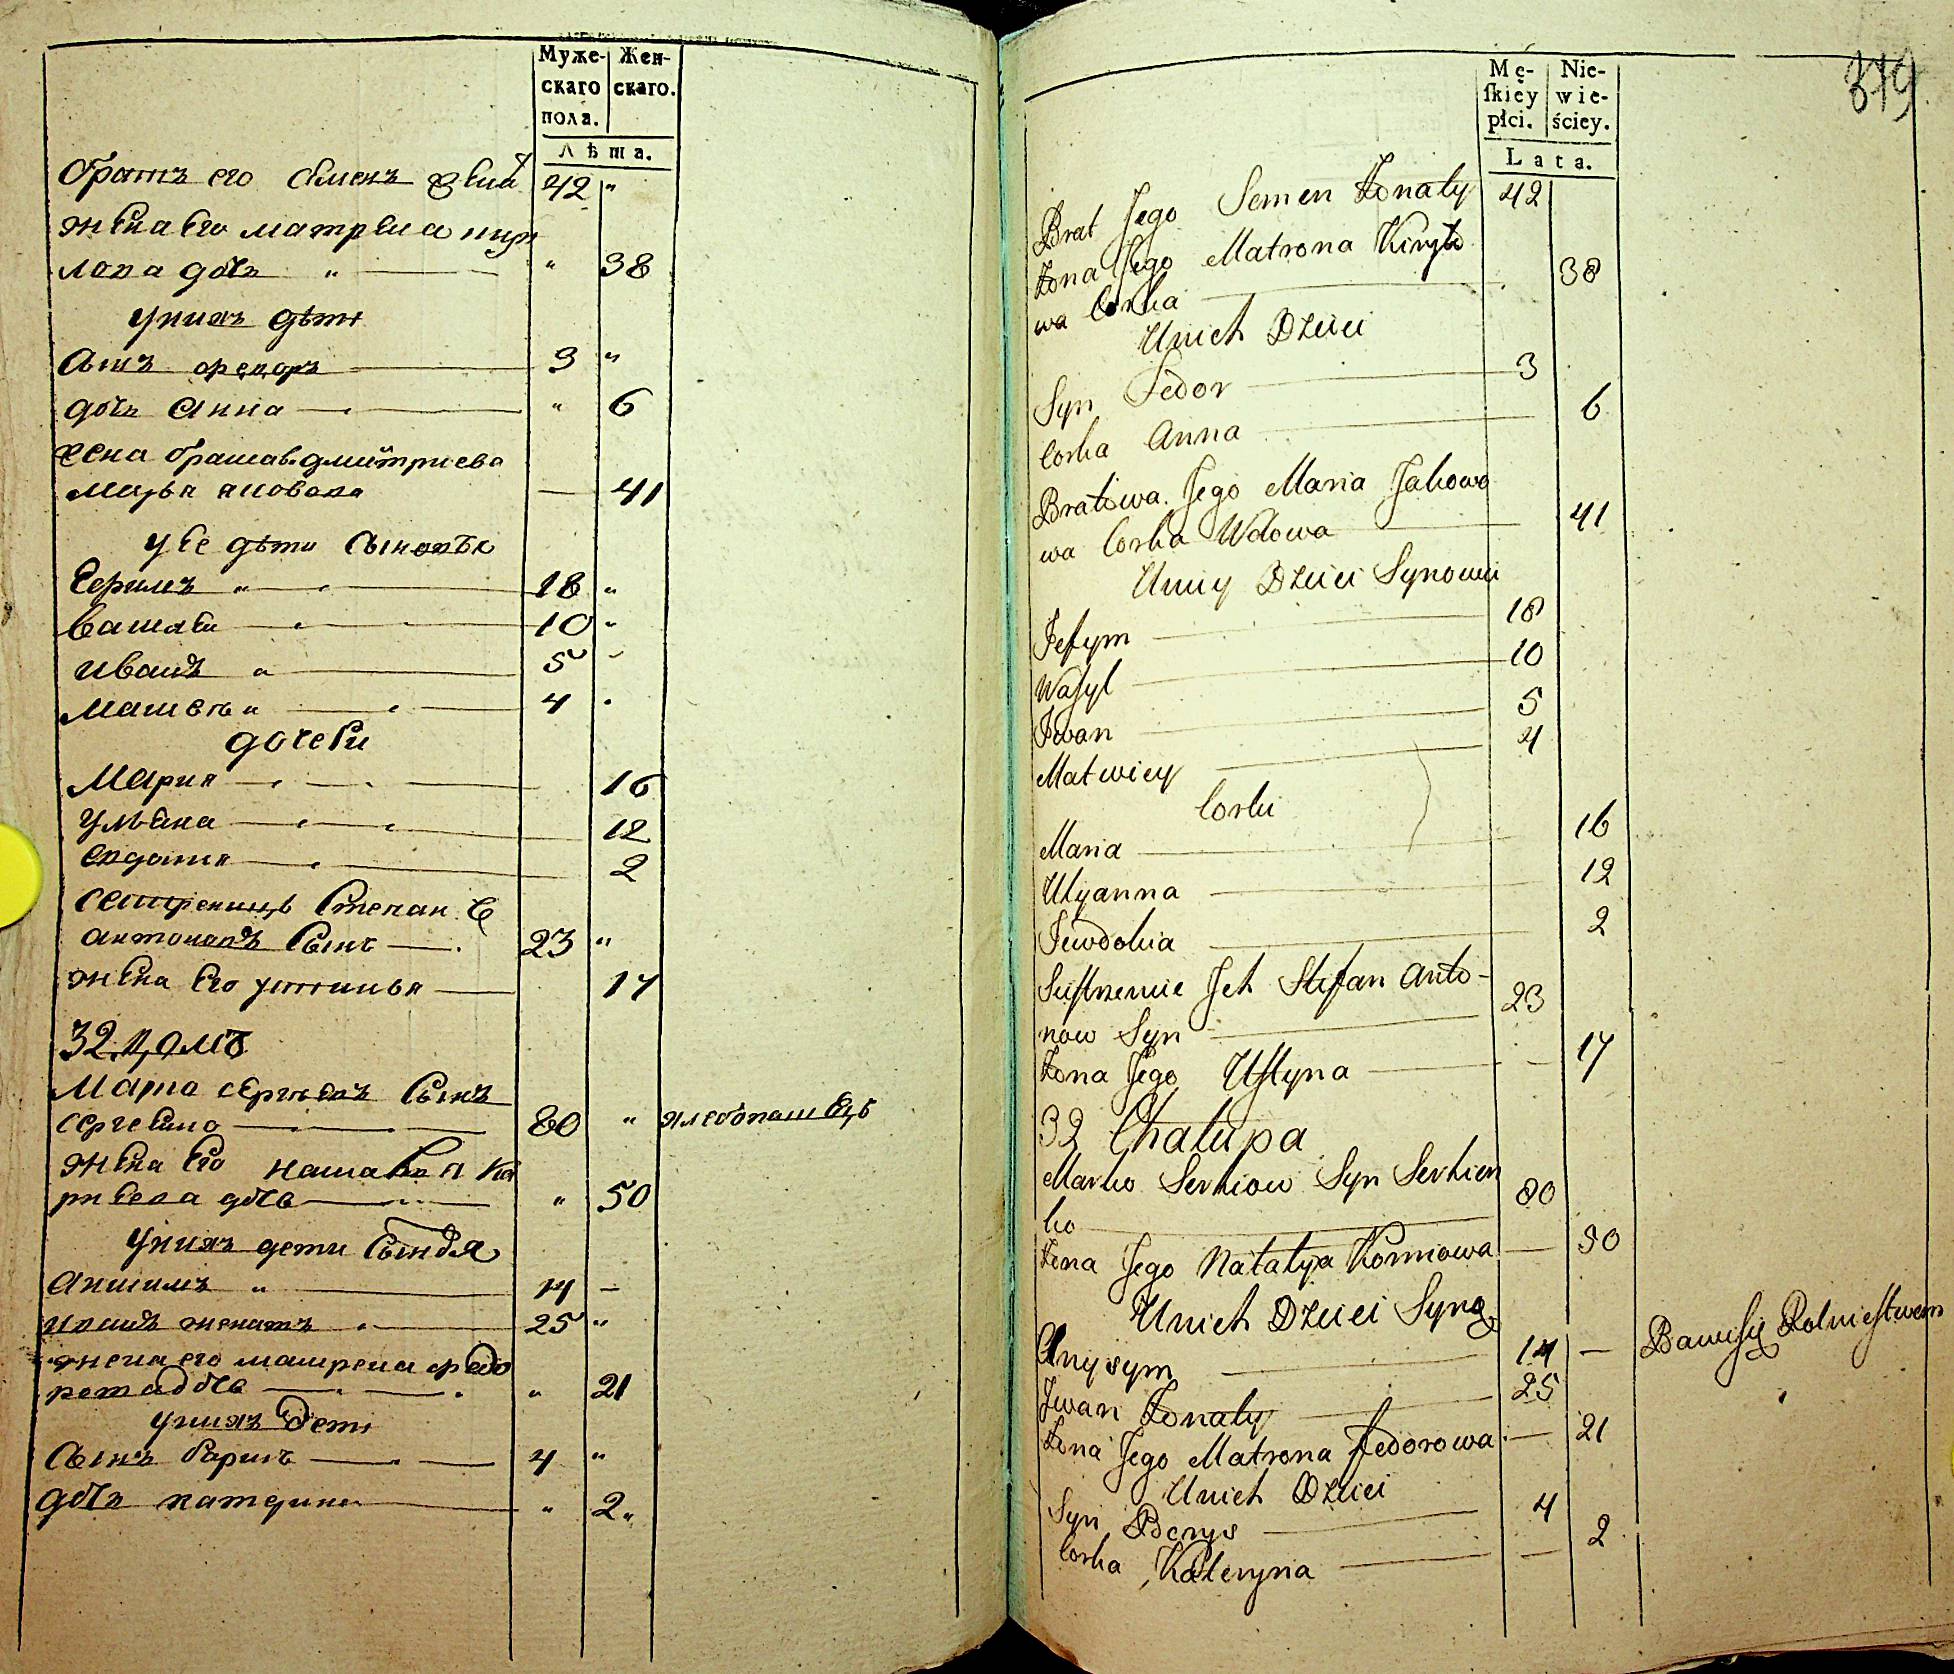 Муже-
скаго
пола.
Жен-
скаго.
Лѣта.
братъ его Семенъ 42 "
жена его матрена кири
лова дочь " — " 38
у нихъ дѣти
Сынъ федоръ — 3 "
дочь Анна — " 6
жена брата дмитриева
марья яковова — 41
у ее дѣти Сыновья
Ефимъ " — 18 "
Василь — 10 "
иванъ " — 5 "
матвей " — 4 "
дочери
Мария — 16
ульяна — 12
евдокия — 2
сестреницъ Степан
антоновъ Сынъ — 23 "
жена его устинья — 17
32. домъ
Марко сергѣевъ Сынъ
сергѣенко — 80 " хлебопашецъ
жена его наталья ко
рнеева дочь — " 50
у нихъ дети Сыновья
анисимъ " — 14 —
иванъ женатъ " 25 "
жена его матрена федо
рова дочь — " 21
у нихъ дети
Сынъ барисъ — 4 "
дочь катерина — " 2 "
379
Mę-
skiey
płci.
Nie-
wie-
ściey.
Lata.
Brat Jego Semen Żonaty 42
Żona Jego Matrona Kiryło
wa Corka — 38
U nich Dzieci
Syn Fedor — 3
Corka Anna — 6
Bratowa Jego Maria Jakowo
wa Corka Wdowa — 41
U niey Dzieci Synowie
Jefym — 18
Wasyl — 10
Jwan — 5
Matwiey — 4
Corki
Maria — 16
Ulyanna — 12
Jewdokia — 2
Siestrzenic Jch Stefan Anto-
now Syn — 23
Żona Jego Ustyna — 17
32 Chalupa
Marko Serhiow Syn Serhien
ko — 80
Żona Jego Natalya Korniowa — 50
U nich Dzieci Syny
Anysym — 14 — Bawi się Rolnictwem
Jwan Żonaty — 25
Żona Jego Matrona Fedorowa — 21
U nich Dzieci
Syn Borys — 4
Corka Kateryna — 2